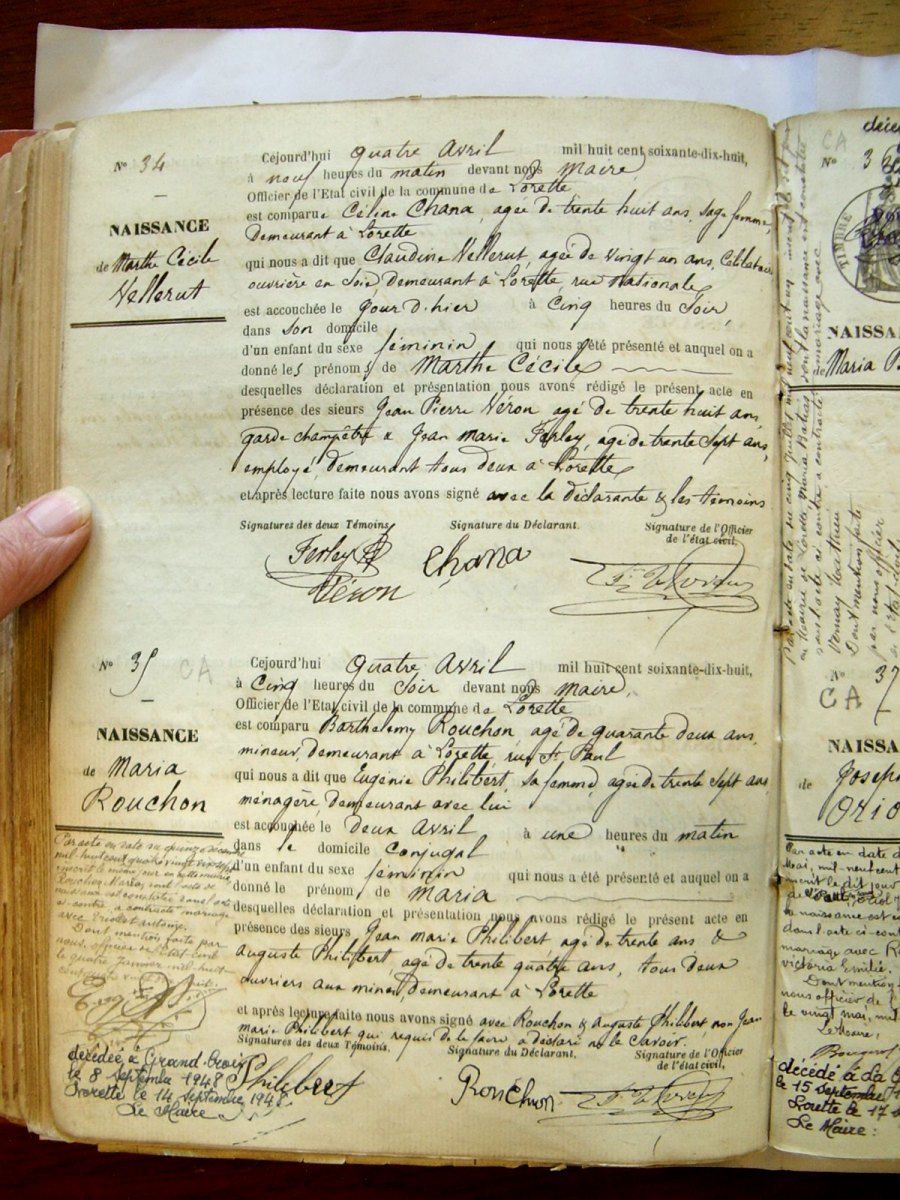 N° 34
NAISSANCE
de Marthe Cécile
Vellerut
Cejourd'hui quatre Avril mil huit cent soixante-dix-huit,
à neuf heures du matin devant nous Maire,
Officier de l'Etat civil de la commune de Lorette
est comparue Céline Chana, agée de trente huit ans, sage femme,
Demeurant à Lorette
qui nous a dit que Claudine Vellerut, agée de vingt un ans, Célibataire
ouvrière en Soie, demeurant à Lorette, rue Nationale
est accouchée le jour d'hier à Cinq heures du Soir,
dans son domicile
d'un enfant du sexe féminin qui nous a été présenté et auquel on a
donné les prénoms de Marthe Cécile
desquelles déclaration et présentation nous avons rédigé le présent acte en
présence des sieurs Jean Pierre Véron agé de trente huit ans,
garde champêtre & Jean Marie Ferley, agé de trente Sept ans,
employé, demeurant tous deux à Lorette
et après lecture faite nous avons signé avec la déclarante & les témoins
Signatures des deux Témoins, Signature du Déclarant. Signature de l'Officier
de l'état civil.
Ferley Chana
Véron
N° 35 CA
NAISSANCE
de Maria
Rouchon
Cejourd'hui quatre Avril mil huit cent soixante-dix-huit,
à Cinq heures du Soir devant nous Maire,
Officier de l'Etat civil de la commune de Lorette
est comparu Barthélemy Rouchon, agé de quarante deux ans,
mineur, demeurant à Lorette, rue St Paul
qui nous a dit que Eugénie Philibert, sa femme, agée de trente Sept ans
ménagère, demeurant avec lui
est accouchée le deux Avril à une heures du matin
dans le domicile conjugal
d'un enfant du sexe féminin qui nous a été présenté et auquel on a
donné le prénom de Maria
desquelles déclaration et présentation nous avons rédigé le présent acte en
présence des sieurs Jean Marie Philibert agé de trente ans &
Auguste Philibert, agé de trente quatre ans, tous deux
ouvriers aux mines, demeurant à Lorette
et après lecture faite nous avons signé avec Rouchon & Auguste Philibert non Jean
Marie Philibert qui requis de le faire a déclaré ne le Savoir.
Signatures des deux Témoins. Signature du Déclarant. Signature de l'Officier
de l'état civil,
Philibert Rouchon
Par acte en date du quinze décembre
mil huit cent quatre vingt dix sept
inscrit le même jour
Rouchon Maria, dont l'acte de
naissance est dans l'acte
ci contre a contracté mariage
avec Antoine.
Dont mention faite par
nous, officier de l'état civil
le quatre Janvier mil huit
cent quatre vingt dix huit.
décédée à Grand-Croix
le 8 septembre 1948
Lorette le 14 septembre 1948
Le Maire
CA
N° 36
TIMBRE
NAISSANCE
de Maria
N° 37
CA
NAISSA
de Joseph
Orio
Par acte en date d
Mai, mil neuf cent
inscrit le dit jour
naissance est
dans l'acte ci-cont
mariage avec
Victoria Emilie.
Dont mention
nous officier de l
le vingt mai, mil
Le Maire,
décédé à La
le 15 septembre
Lorette le 17
Le Maire :